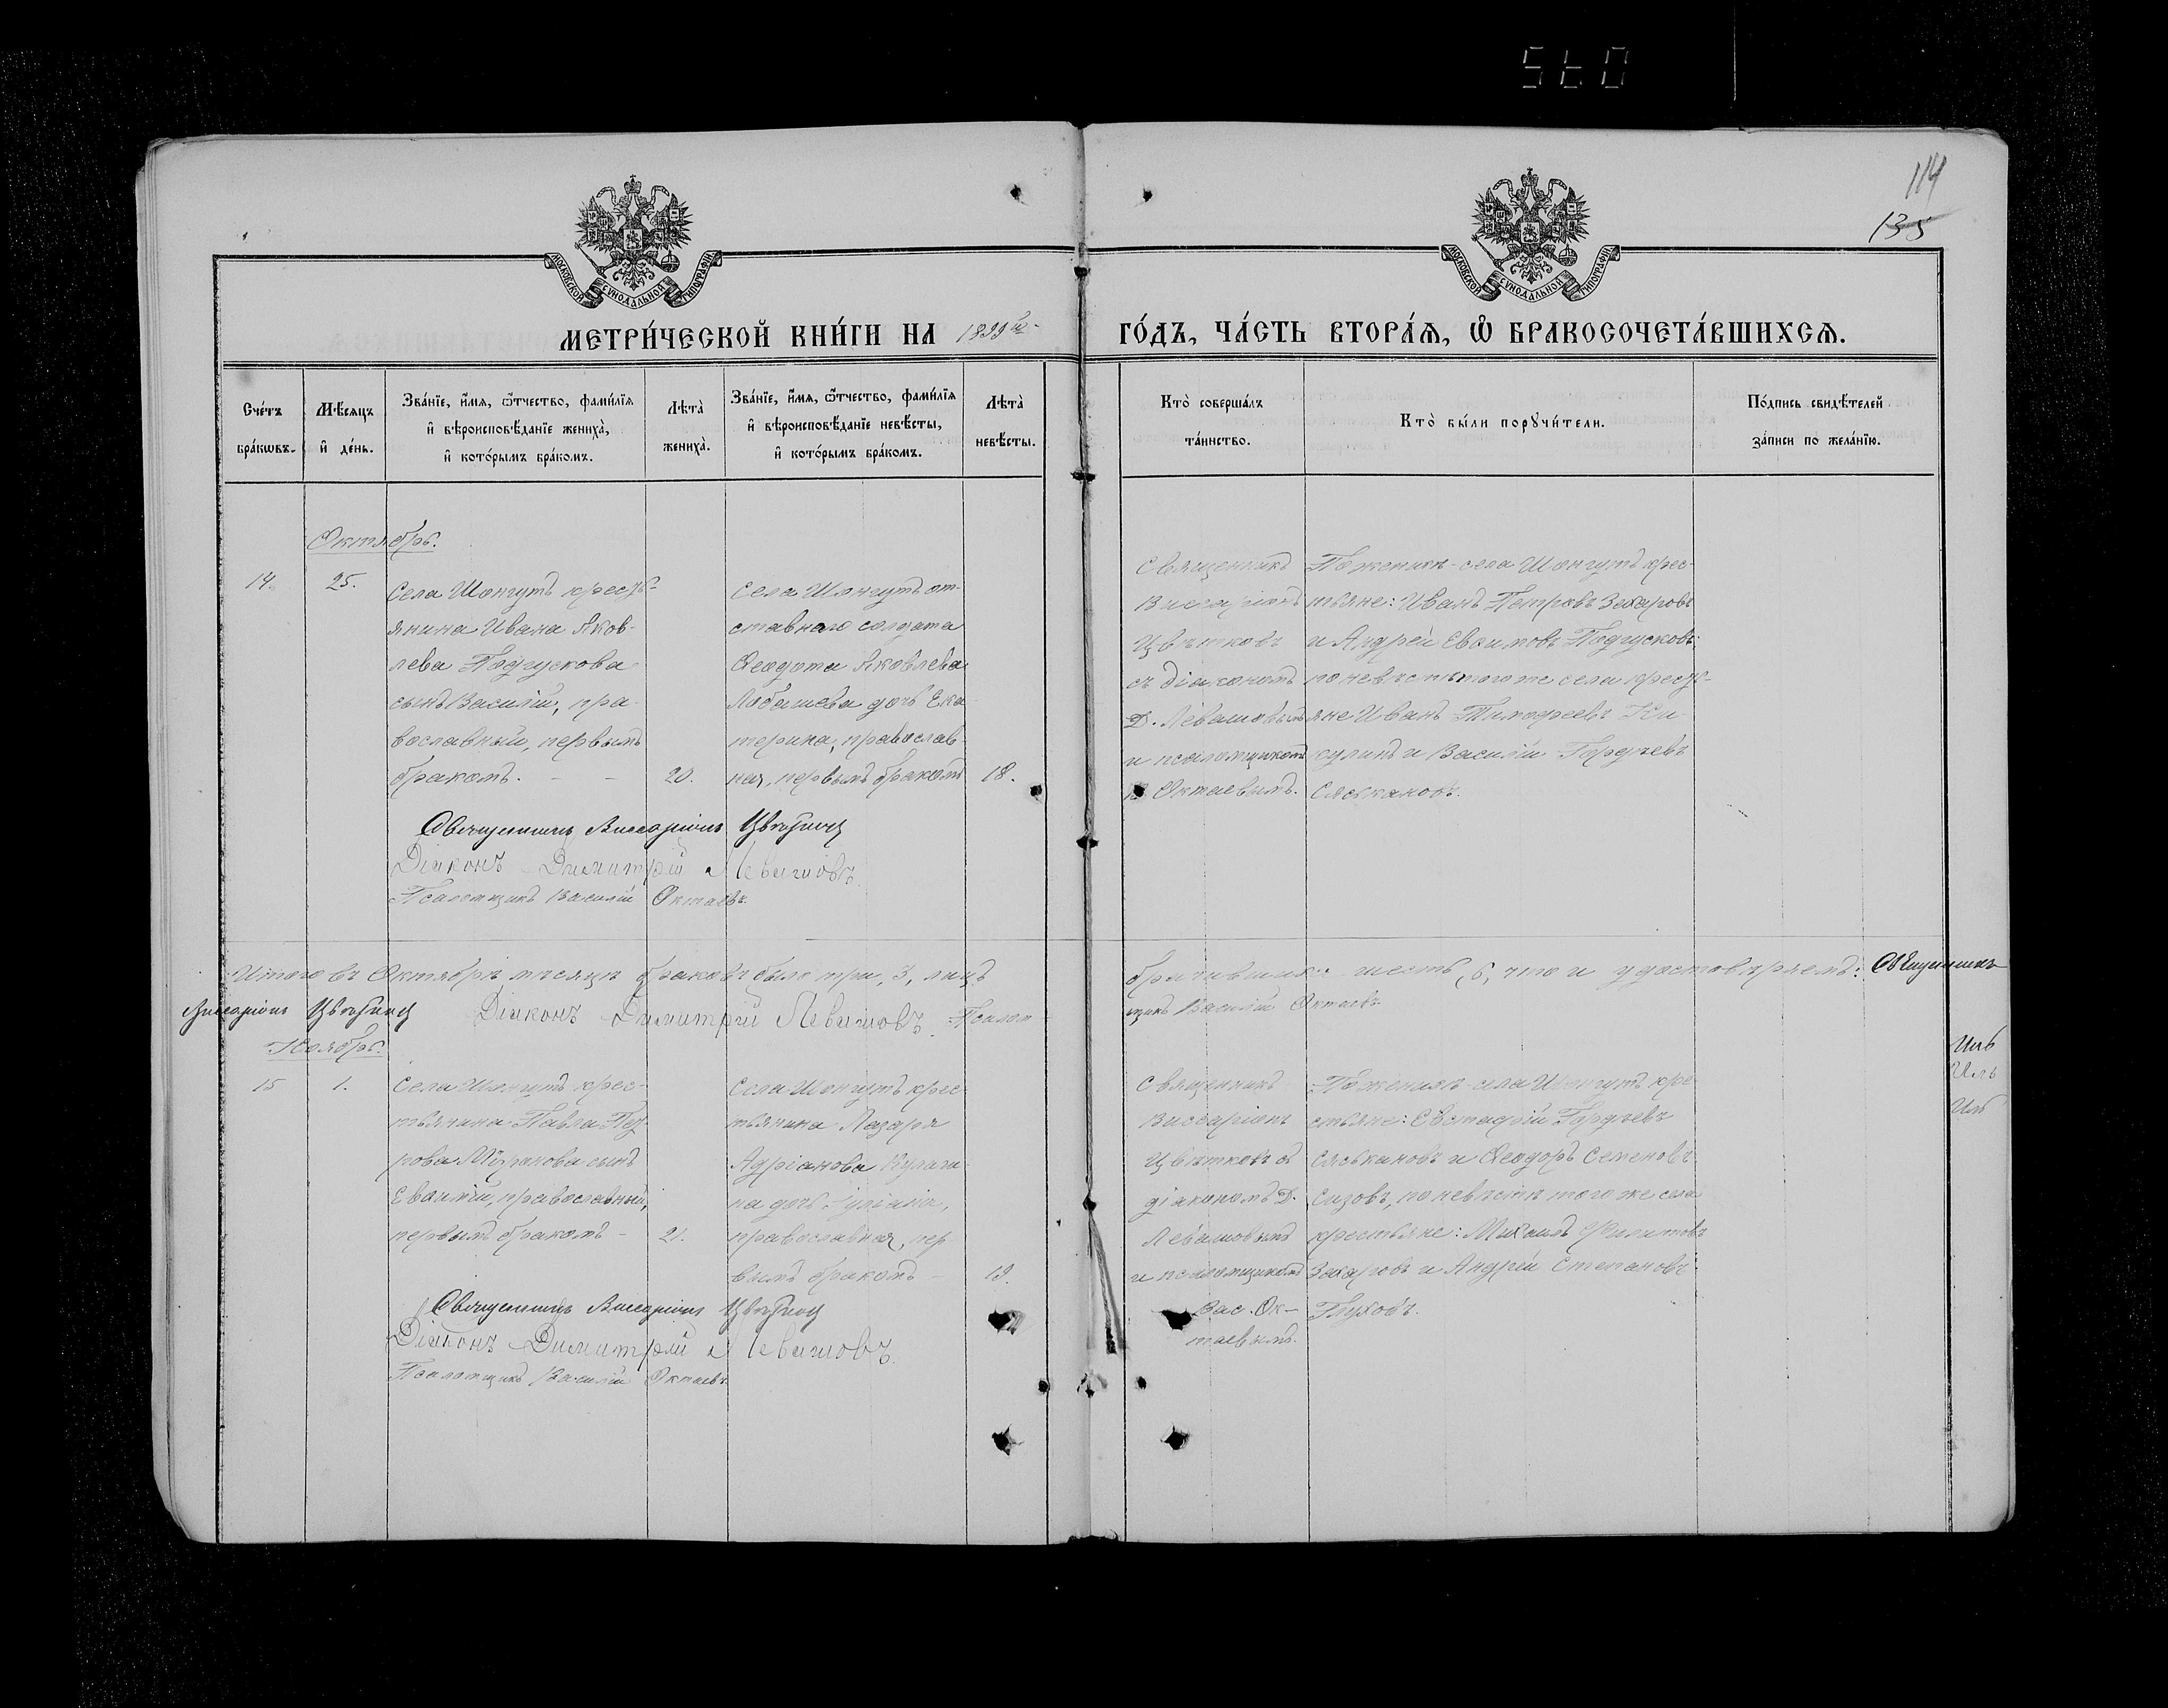 114
135
МОСКОВСКОЙ СѴНОДАЛЬНОЙ ТИПОГРАФІИ
МОСКОВСКОЙ СѴНОДАЛЬНОЙ ТИПОГРАФІИ
МЕТРИ́ЧЕСКОЙ КНИ́ГИ НА 1899 й
ГО́ДЪ, ЧА́СТЬ ВТОРА́Я, Ѿ БРАКОСОЧЕТА́ВШИХСЯ.
Сче́тъ бра́кωвъ.
Мѣ́сяцъ и҆ де́нь.
Зва́нїе, и҆́мя, ѻ҆́тчество, фами́лїя
и҆ вѣроисповѣ́данїе жениха̀,
и҆ кото́рымъ бра́комъ.
Лѣта̀ жениха̀.
Зва́нїе, и҆́мя, ѻ҆́тчество, фами́лїя
и҆ вѣроисповѣ́данїе невѣ́сты,
и҆ кото́рымъ бра́комъ.
Лѣта̀ невѣ́сты.
Кто̀ соверша́лъ
та́инство.
Кто̀ бы́ли порꙋчи́тели.
По́дпись свидѣ́телей
за́писи по жела́нїю.
Октябрь.
14. 25.
Села Шонгутъ кресть-
янина Ивана Яков-
лева Подгускова
сынъ Василій, пра-
вославный, первымъ
бракомъ. - - 20.
Села Шонгутъ от-
ставного солдата
Ѳеодота Яковлева
Лобашева дочь Ека-
терина, православ-
ная, первымъ бракомъ 18.
Священникъ
Виссаріонъ
Цвѣтковъ
съ діакономъ
Д. Левашовымъ
и псаломщикомъ
В. Октаевымъ.
По женихѣ - села Шонгутъ крес-
тьяне: Иванъ Петровъ Захаровъ
и Андрей Евѳимовъ Подгусковъ;
по невѣстѣ того же села кресть-
яне Иванъ Тимофеевъ
и Василій Гордѣевъ
Сяськановъ.
Священникъ Виссаріонъ Цвѣтковъ
Діаконъ Димитрій Левашовъ
Псаломщикъ Василій Октаевъ.
Итого въ Октябрѣ мѣсяцѣ браковъ было три, 3, лицъ
брачившихся шесть, 6, что и удостовѣряемъ: Священникъ
Виссаріонъ Цвѣтковъ Діаконъ Димитрій Левашовъ. Псалом-
щикъ Василій Октаевъ.
Ноябрь.
15 1.
Села Шонгутъ крес-
тьянина Павла Пет-
рова сынъ
Евѳимій, православный,
первымъ бракомъ - 21.
Села Шонгутъ крес-
тьянина Лазаря
Адріанова Кулаги-
на дочь Іуліанія,
православная, пер-
вымъ бракомъ - 19.
Священникъ
Виссаріонъ
Цвѣтковъ съ
діакономъ Д.
Левашовымъ
и псаломщикомъ
Вас. Ок-
таевымъ.
По женихѣ - села Шонгутъ кре-
стьяне: Евстафій Гордѣевъ
Сяськановъ и Ѳеодоръ Семеновъ
Сизовъ, по невѣстѣ того же села
крестьяне: Михаилъ Филиповъ
Захаровъ и Андрей Степановъ
Глуховъ.
Священникъ Виссаріонъ Цвѣтковъ
Діаконъ Димитрій Левашовъ.
Псаломщикъ Василій Октаевъ.